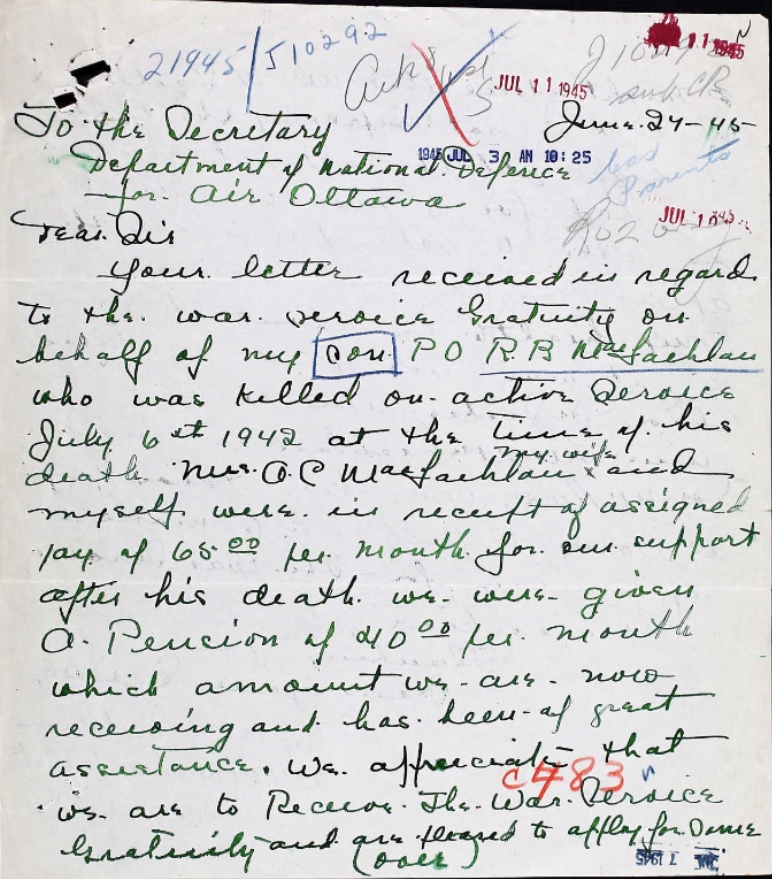 21945/J10292
JUL 11 1945
11 1945
June 27-45
To the Secretary
1945 JUL 3 AM 10:25
Department of National Defence
for Air Ottawa
has
Parents
JUL 10 1945
Dear Sir
Your letter received in regard
to the war service Gratuity on
behalf of my son PO R.B MacLachlan
who was killed on active Service
July 6th 1942 at the time of his
death Mrs. O.C MacLachlan my wife and
myself were in receipt of assigned
pay of 65 00 per month for our support
after his death we were given
A. Pencion of 40 00 per month
which amount we are now
receiving and has been of great
assistance. We appreciate that
C483
we are to Receive The War Service
Gratuity and are pleased to apply for same
(over)